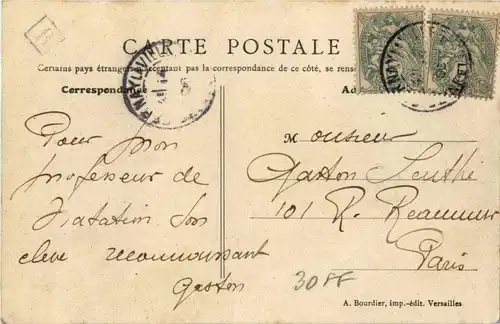 CARTE POSTALE
Certains pays étrangers acceptant pas la correspondance de ce côté, se rens
Correspondance
Ad
Pour mon
professeur de
Natation son
eleve reconnaissant
Gaston
Monsieur
Gaston
101 R. Reaumur
Paris
30FF
A. Bourdier, imp.-édit. Versailles